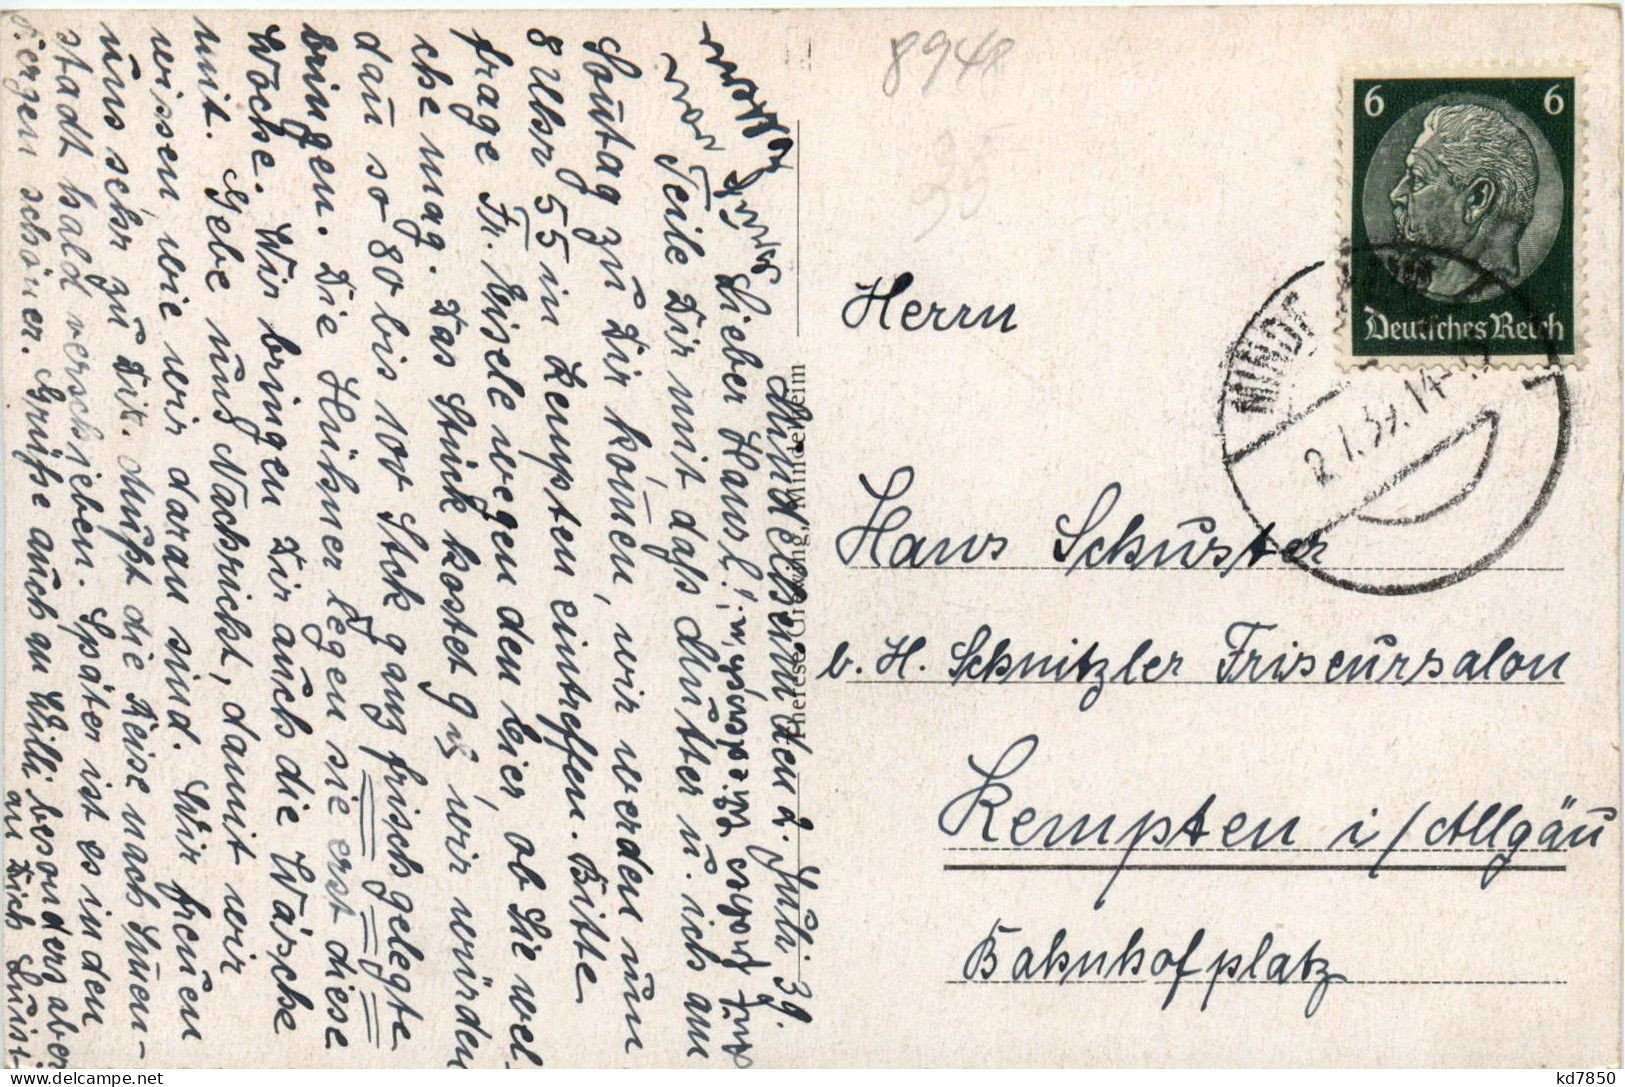 Mindelheim den 2. Juli 39.
Lieber Hansl!
Teile Dir mit daß Mutter u. ich am
Sontag zu Dir kom̄en, wir werden um
8 Uhr 55 in Kempten eintreffen. Bitte
frage Fr. Eisele wegen den Eier ob Sie wel-
che mag. Das Stück kostet 9 ₰, wir würden
dan so 80 bis 100 Stck ganz frischgelegte
bringen. Die Hühner legen sie erst diese
Woche. Wir bringen Dir auch die Wäsche
mit. Gebe uns Nachricht, damit wir
wissen wie wir daran sind. Wir freuen
uns sehr zu Dir. Mußt die Reise nach Mün-
stadt hald verschieben. Später ist es in den
Ferien schöner. Grüße auch an Willi besonders aber
an Dich Luisi-
und Mutter
8948
35
6 6
Deutsches Reich
MINDE
2.7.39.14-
Therese Grewing, Mindelheim
Herrn
Hans Schuster
b. H. Schnitzler Friseursalon
Kempten i/Allgäu
Bahnhofplatz
kd7850